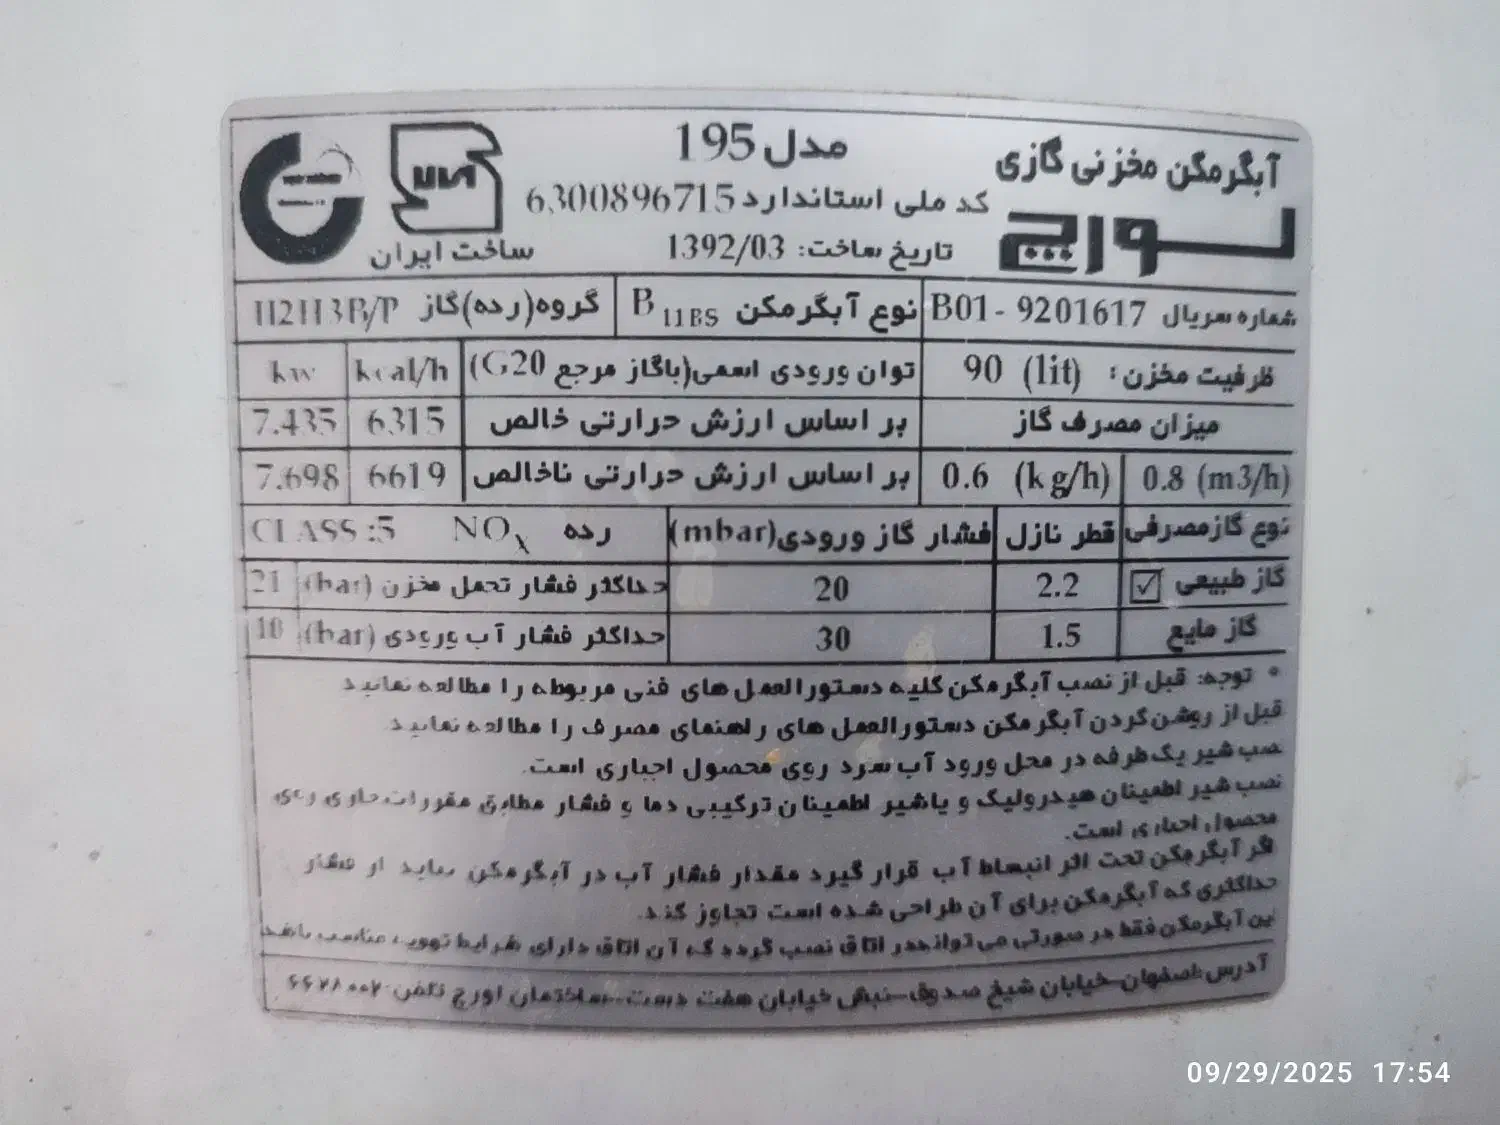 آبگرمکن مخزنی گازی
مدل 195
کد ملی استاندارد 6300896715
تاریخ ساخت: 1392/03
ساخت ایران
شماره سریال B01- 9201617
نوع آبگرمکن B11BS
گروه(رده)گاز II2H3B/P
ظرفیت مخزن: 90 (lit)
توان ورودی اسمی(باگاز مرجع G20) kcal/h kw
میزان مصرف گاز
بر اساس ارزش حرارتی خالص 6315 7.435
0.8 (m3/h) 0.6 (kg/h)
بر اساس ارزش حرارتی ناخالص 6619 7.698
نوع گازمصرفی قطر نازل فشار گاز ورودی(mbar) رده NOx CLASS :5
گاز طبیعی ☑ 2.2 20 حداکثر فشار تحمل مخزن (bar) 21
گاز مایع 1.5 30 حداکثر فشار آب ورودی (bar) 10
* توجه: قبل از نصب آبگرمکن کلیه دستورالعمل های فنی مربوطه را مطالعه نمائید
قبل از روشن کردن آبگرمکن دستورالعمل های راهنمای مصرف را مطالعه نمائید
نصب شیر یکطرفه در محل ورود آب سرد روی محصول اجباری است.
نصب شیر اطمینان هیدرولیک و یاشیر اطمینان ترکیبی دما و فشار مطابق مقررات جاری روی
محصول اجباری است.
اگر آبگرمکن تحت اثر انبساط آب قرار گیرد مقدار فشار آب در آبگرمکن نباید از فشار
حداکثری که آبگرمکن برای آن طراحی شده است تجاوز کند.
این آبگرمکن فقط در صورتی می تواند در اتاق نصب گردد که آن اتاق دارای شرایط تهویه مناسب باشد
آدرس:اصفهان-خیابان شیخ صدوق-نبش خیابان هفت دست-ساختمان لورچ تلفن:
09/29/2025 17:54